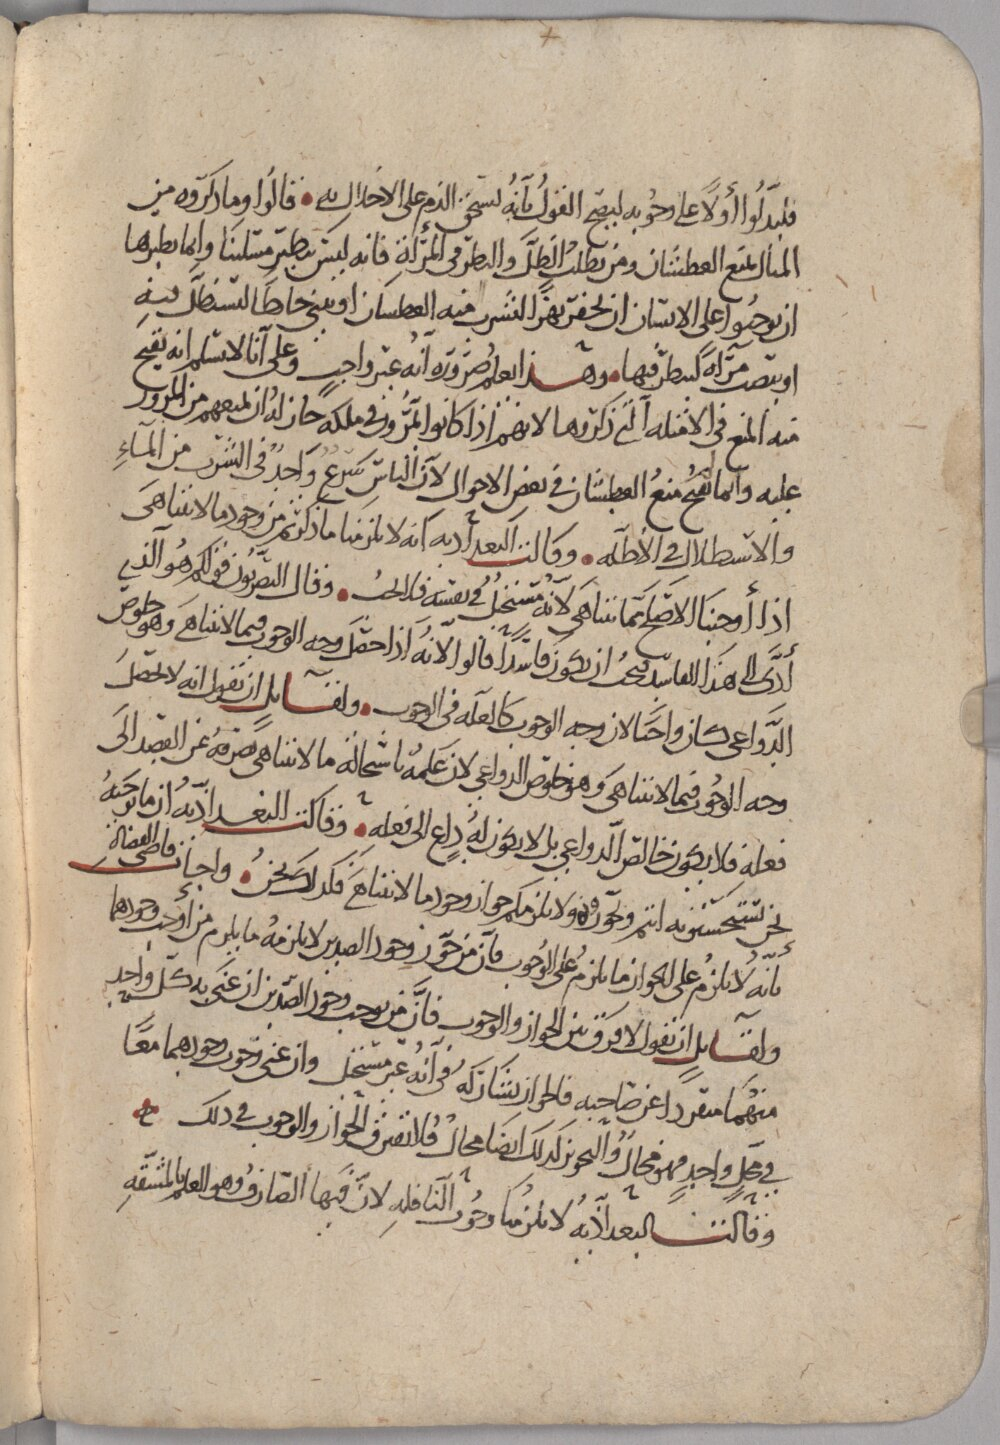 فليدلوا أولا على وجوبه ليصح القول بأنه يستحق الذم على الاخلال به • قالوا وما ذكروه من
المثال بمنع العطشان ومن يطلب الظل والنظر في المرآة فانه ليس بنظير مسئلتنا وانما نظيرها
ان يوجبوا على الانسان ان يحفر نهرا ليشرب منه العطشان او يبني حائطا ليستظل به
او ينصب مرآة لينظر فيها • وهذا يعلم ضرورة أنه غير واجب وعلى أنا لا نسلم انه يقبح
منه المنع في الامثلة التي ذكروها لانهم اذا كانوا يمرون في ملكه جاز له ان يمنعهم من المرور
عليه وانما يقبح منع العطشان في بعض الاحوال لأن الناس شرع واحد في الشرب من الماء
والاستظلال في الأظلة • وقالت البغدادية انه لا يلزمنا ما ذكرتم من وجود ما لا يتناهى
اذا أوجبنا الاصلح مما يتناهى لأنه مستحيل في نفسه • وقال البصريون قولكم هو الذي
أدى الى هذا الفاسد فيجب ان يكون فاسدا قالوا لأنه اذا حصل وجه الوجوب فيما لا يتناهى وهو خلوص
الدواعي كان واجبا لان وجه الوجوب كالعلة في الوجوب • ولقائل ان يقول انه لا يحصل
وجه الوجوب فيما لا يتناهى وهو خلوص الدواعي لان علمه باستحالة ما لا يتناهى يصرفه عن القصد الى
فعله فلا يكون خالص الدواعي بل لا يكون له داع الى فعله • وقالت البغدادية ان ما نوجبه
نحن تستحسنونه انتم وتجوزونه ولا يلزمكم جواز وجود ما لا يتناهى فكذلك نحن • واجاب قاضي القضاة
بأنه لا يلزم على الجواز ما يلزم على الوجوب فان من جوز وجود الضدين لا يلزمه ما يلزم من أوجب وجودهما
ولقائل ان يقول لا فرق بين الجواز والوجوب فان من يوجب وجود الضدين ان عنى به كل واحد
منهما منفردا عن صاحبه فالجواز يشاركه في أنه غير مستحيل وان عنى وجوب وجودهما معا
في محل واحد فهو محال والتجويز كذلك ايضا محال فلا تفترق الجواز والوجوب في ذلك
وقالت البغدادية لا يلزمنا وجوب النافلة لان فيها الصارف وهو العلم بالمشقة